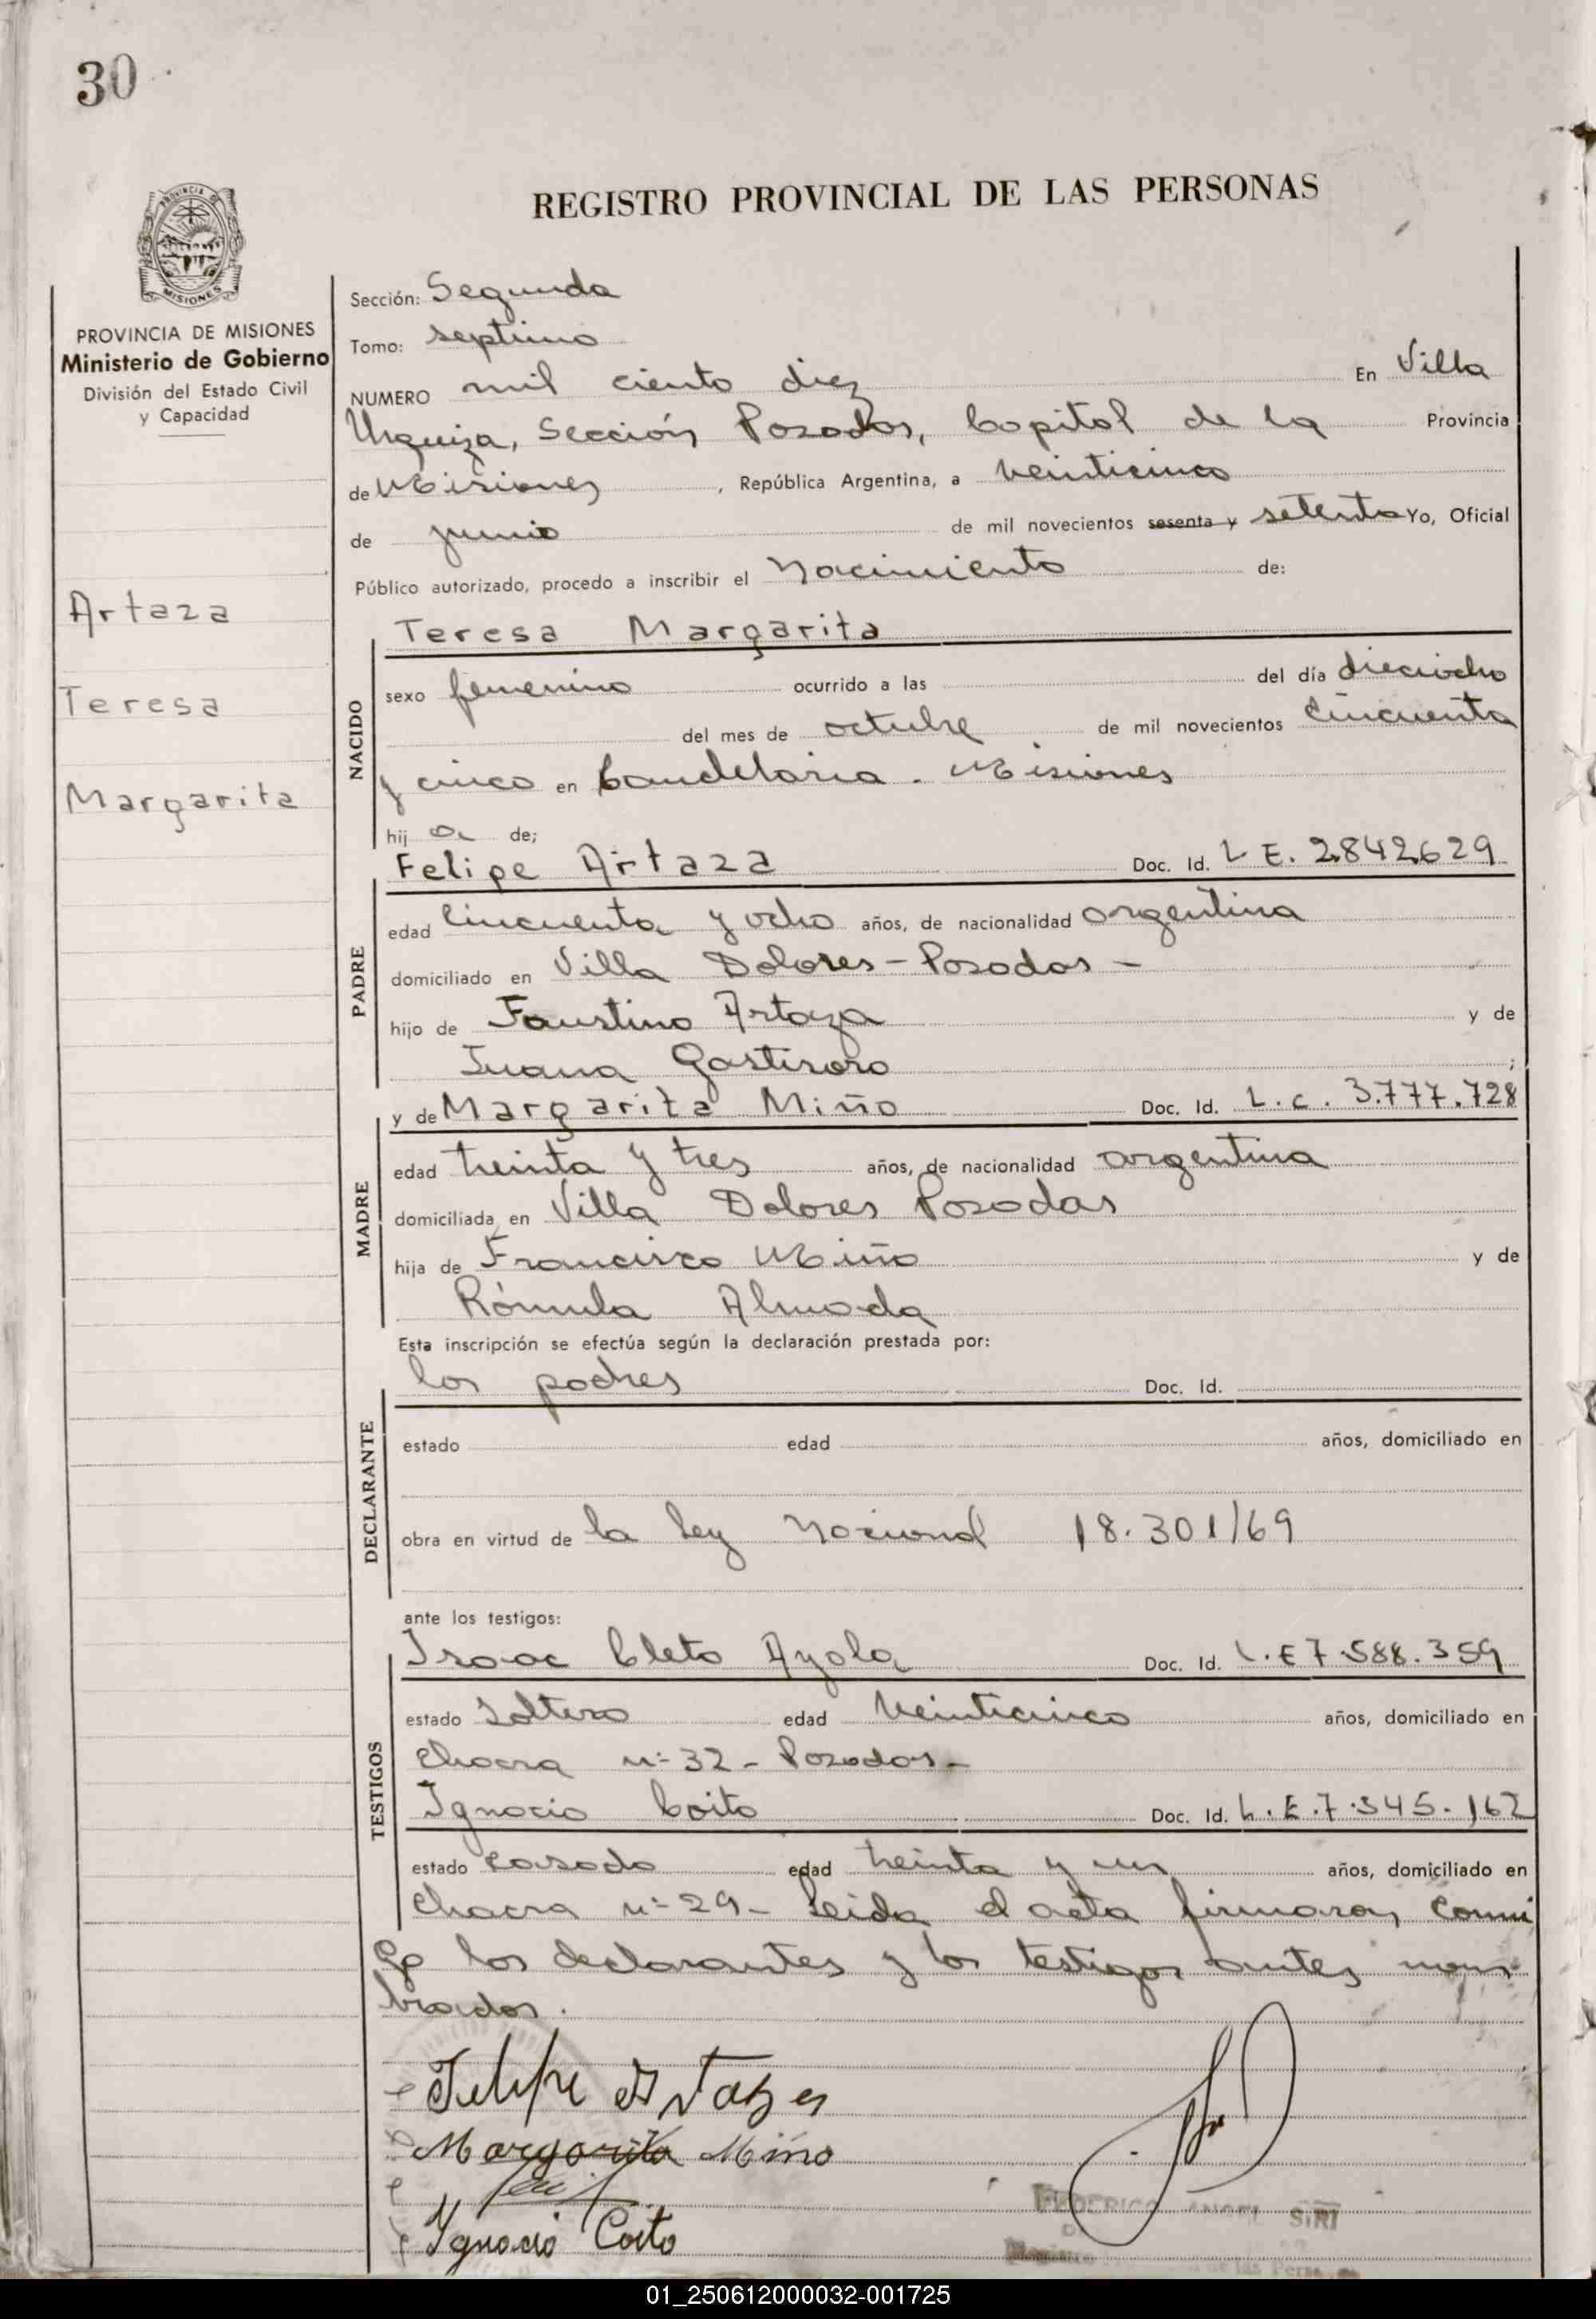 30
REGISTRO PROVINCIAL DE LAS PERSONAS
PROVINCIA
MISIONES
PROVINCIA DE MISIONES
Ministerio de Gobierno
División del Estado Civil
y Capacidad
Artaza
Teresa
Margarita
Sección: Segunda
Tomo: septimo
NUMERO mil ciento diez En Villa
Urquiza, Sección Posadas, Capital de la Provincia
de Misiones, República Argentina, a veinticinco
de junio de mil novecientos sesenta y setenta Yo, Oficial
Público autorizado, procedo a inscribir el Nacimiento de:
Teresa Margarita
NACIDO
sexo femenino ocurrido a las del día dieciocho
del mes de octubre de mil novecientos cincuenta
y cinco en Candelaria. Misiones
hij a de;
Felipe Artaza Doc. Id. L E. 2.842.629
PADRE
edad cincuenta y ocho años, de nacionalidad argentina
domiciliado en Villa Dolores - Posadas -
hijo de Faustino Artaza y de
Juana Gastisoro ;
y de Margarita Miño Doc. Id. L.C. 3.777.728
MADRE
edad treinta y tres años, de nacionalidad argentina
domiciliada en Villa Dolores Posadas
hija de Francisco Miño y de
Rómula Almada
Esta inscripción se efectúa según la declaración prestada por:
los padres Doc. Id.
DECLARANTE
estado edad años, domiciliado en
obra en virtud de la ley Nacional 18.301/69
ante los testigos:
Isaac Cleto Ayala Doc. Id. L.E 7.588.359
TESTIGOS
estado Soltero edad veinticinco años, domiciliado en
Chacra nº 32 - Posadas -
Ignacio Coito Doc. Id. L.E.7.545.162
estado casado edad treinta y un años, domiciliado en
Chacra nº 29 - Leida el acta firmaron conmi
go los declarantes y los testigos antes nom
brados.
Felipe Artaza
Margarita Miño
Ignacio Coito
FEDERICO ANGEL SIRI
01_250612000032-001725